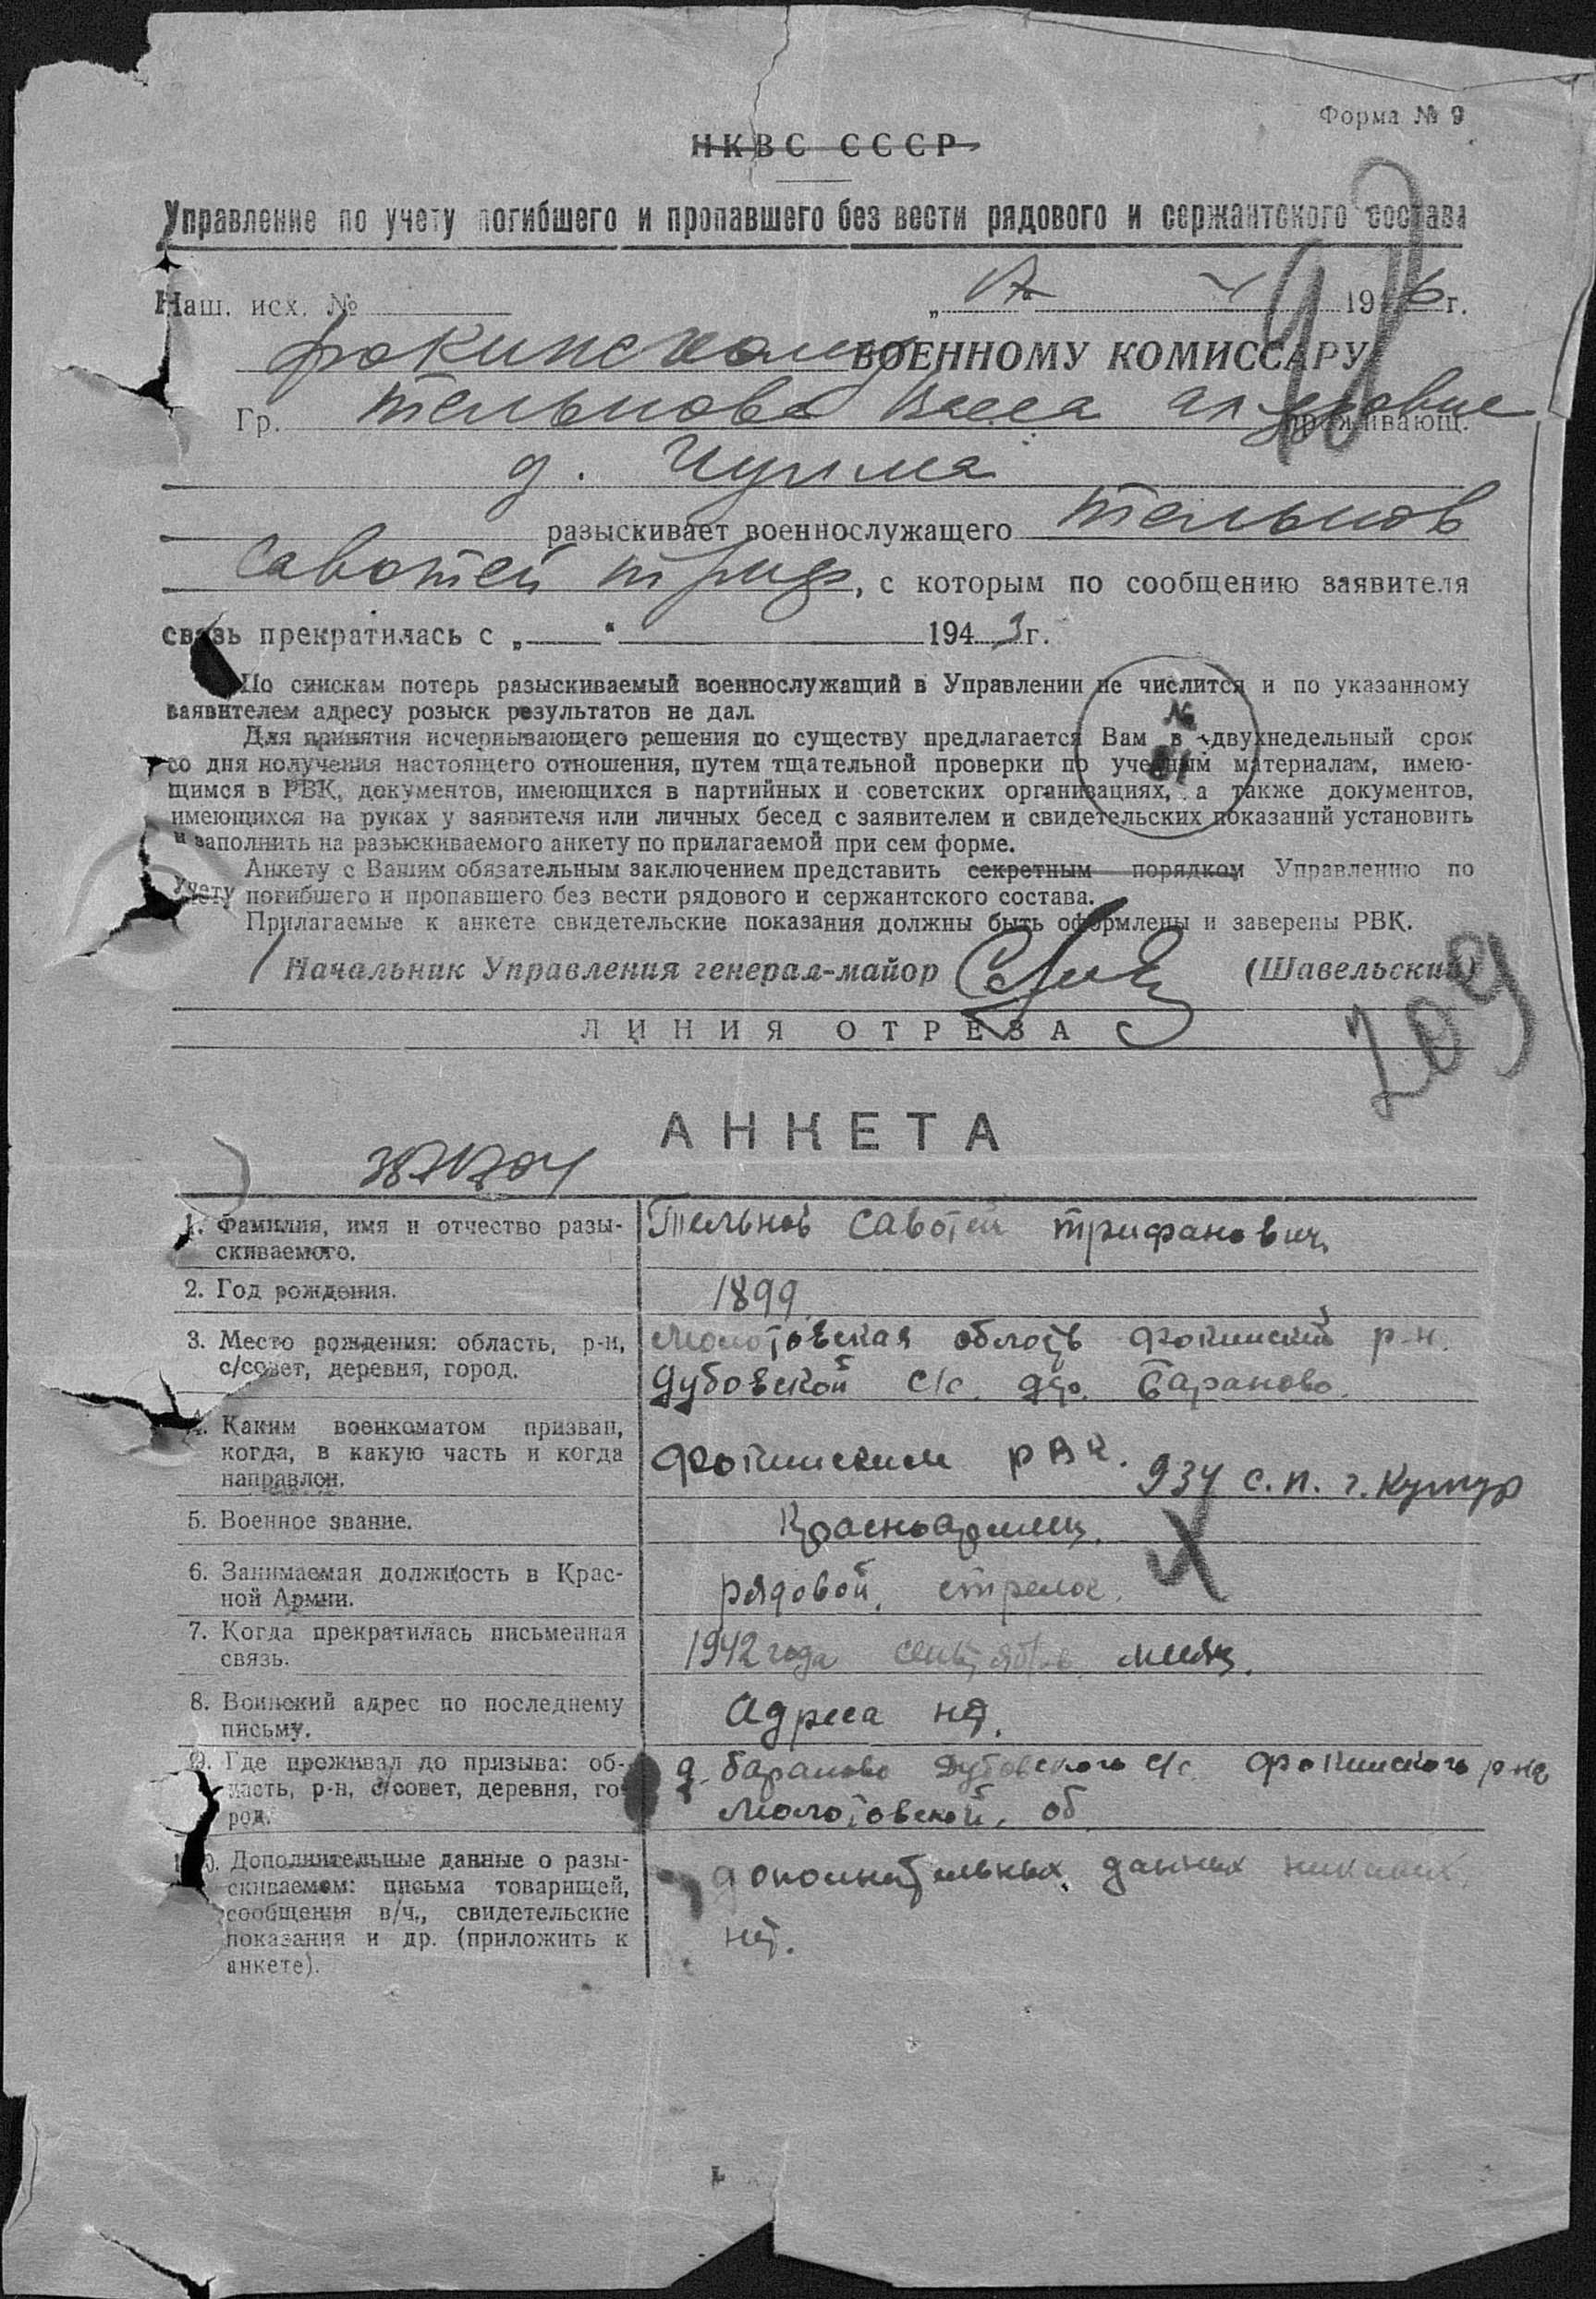 Форма № 9
НКВС СССР
Управление по учету погибшего и пропавшего без вести рядового и сержантского состава
Наш. исх. № „ 1946 г.
Фокинскому ВОЕННОМУ КОМИССАРУ
Гр. Тельнова Васса проживающ.
д.
разыскивает военнослужащего Тельнов
Савотей Триф, с которым по сообщению заявителя
связь прекратилась с „ “ 1943 г.
По спискам потерь разыскиваемый военнослужащий в Управлении не числится и по указанному
заявителем адресу розыск результатов не дал.
Для принятия исчерпывающего решения по существу предлагается Вам в двухнедельный срок
со дня получения настоящего отношения, путем тщательной проверки по учетным материалам, имею-
щимся в РВК, документов, имеющихся в партийных и советских организациях, а также документов,
имеющихся на руках у заявителя или личных бесед с заявителем и свидетельских показаний установить
и заполнить на разыскиваемого анкету по прилагаемой при сем форме.
Анкету с Вашим обязательным заключением представить секретным порядком Управлению по
учету погибшего и пропавшего без вести рядового и сержантского состава.
Прилагаемые к анкете свидетельские показания должны быть оформлены и заверены РВК.
Начальник Управления генерал-майор (Шавельский)
209
ЛИНИЯ ОТРЕЗА
АНКЕТА
1. Фамилия, имя и отчество разы-
скиваемого.
Тельнов Савотей Трифанович
2. Год рождения.
1899
3. Место рождения: область, р-н,
с/совет, деревня, город.
Молотовская область Фокинский р-н.
Дубовской с/с. дер. Бараново.
4. Каким военкоматом призван,
когда, в какую часть и когда
направлен.
Фокинским рвк. 934 с.п. г. Кунгур
5. Военное звание.
Красноармеец.
6. Занимаемая должность в Крас-
ной Армии.
рядовой, стрелок.
7. Когда прекратилась письменная
связь.
1942 года сентябрь месяц.
8. Воинский адрес по последнему
письму.
Адреса нет.
9. Где проживал до призыва: об-
ласть, р-н, с/совет, деревня, го-
род.
д. Бараново Дубовского с/с. Фокинского р-на
Молотовской, об
10. Дополнительные данные о разы-
скиваемом: письма товарищей,
сообщения в/ч., свидетельские
показания и др. (приложить к
анкете).
дополнительных данных никаких
нет.